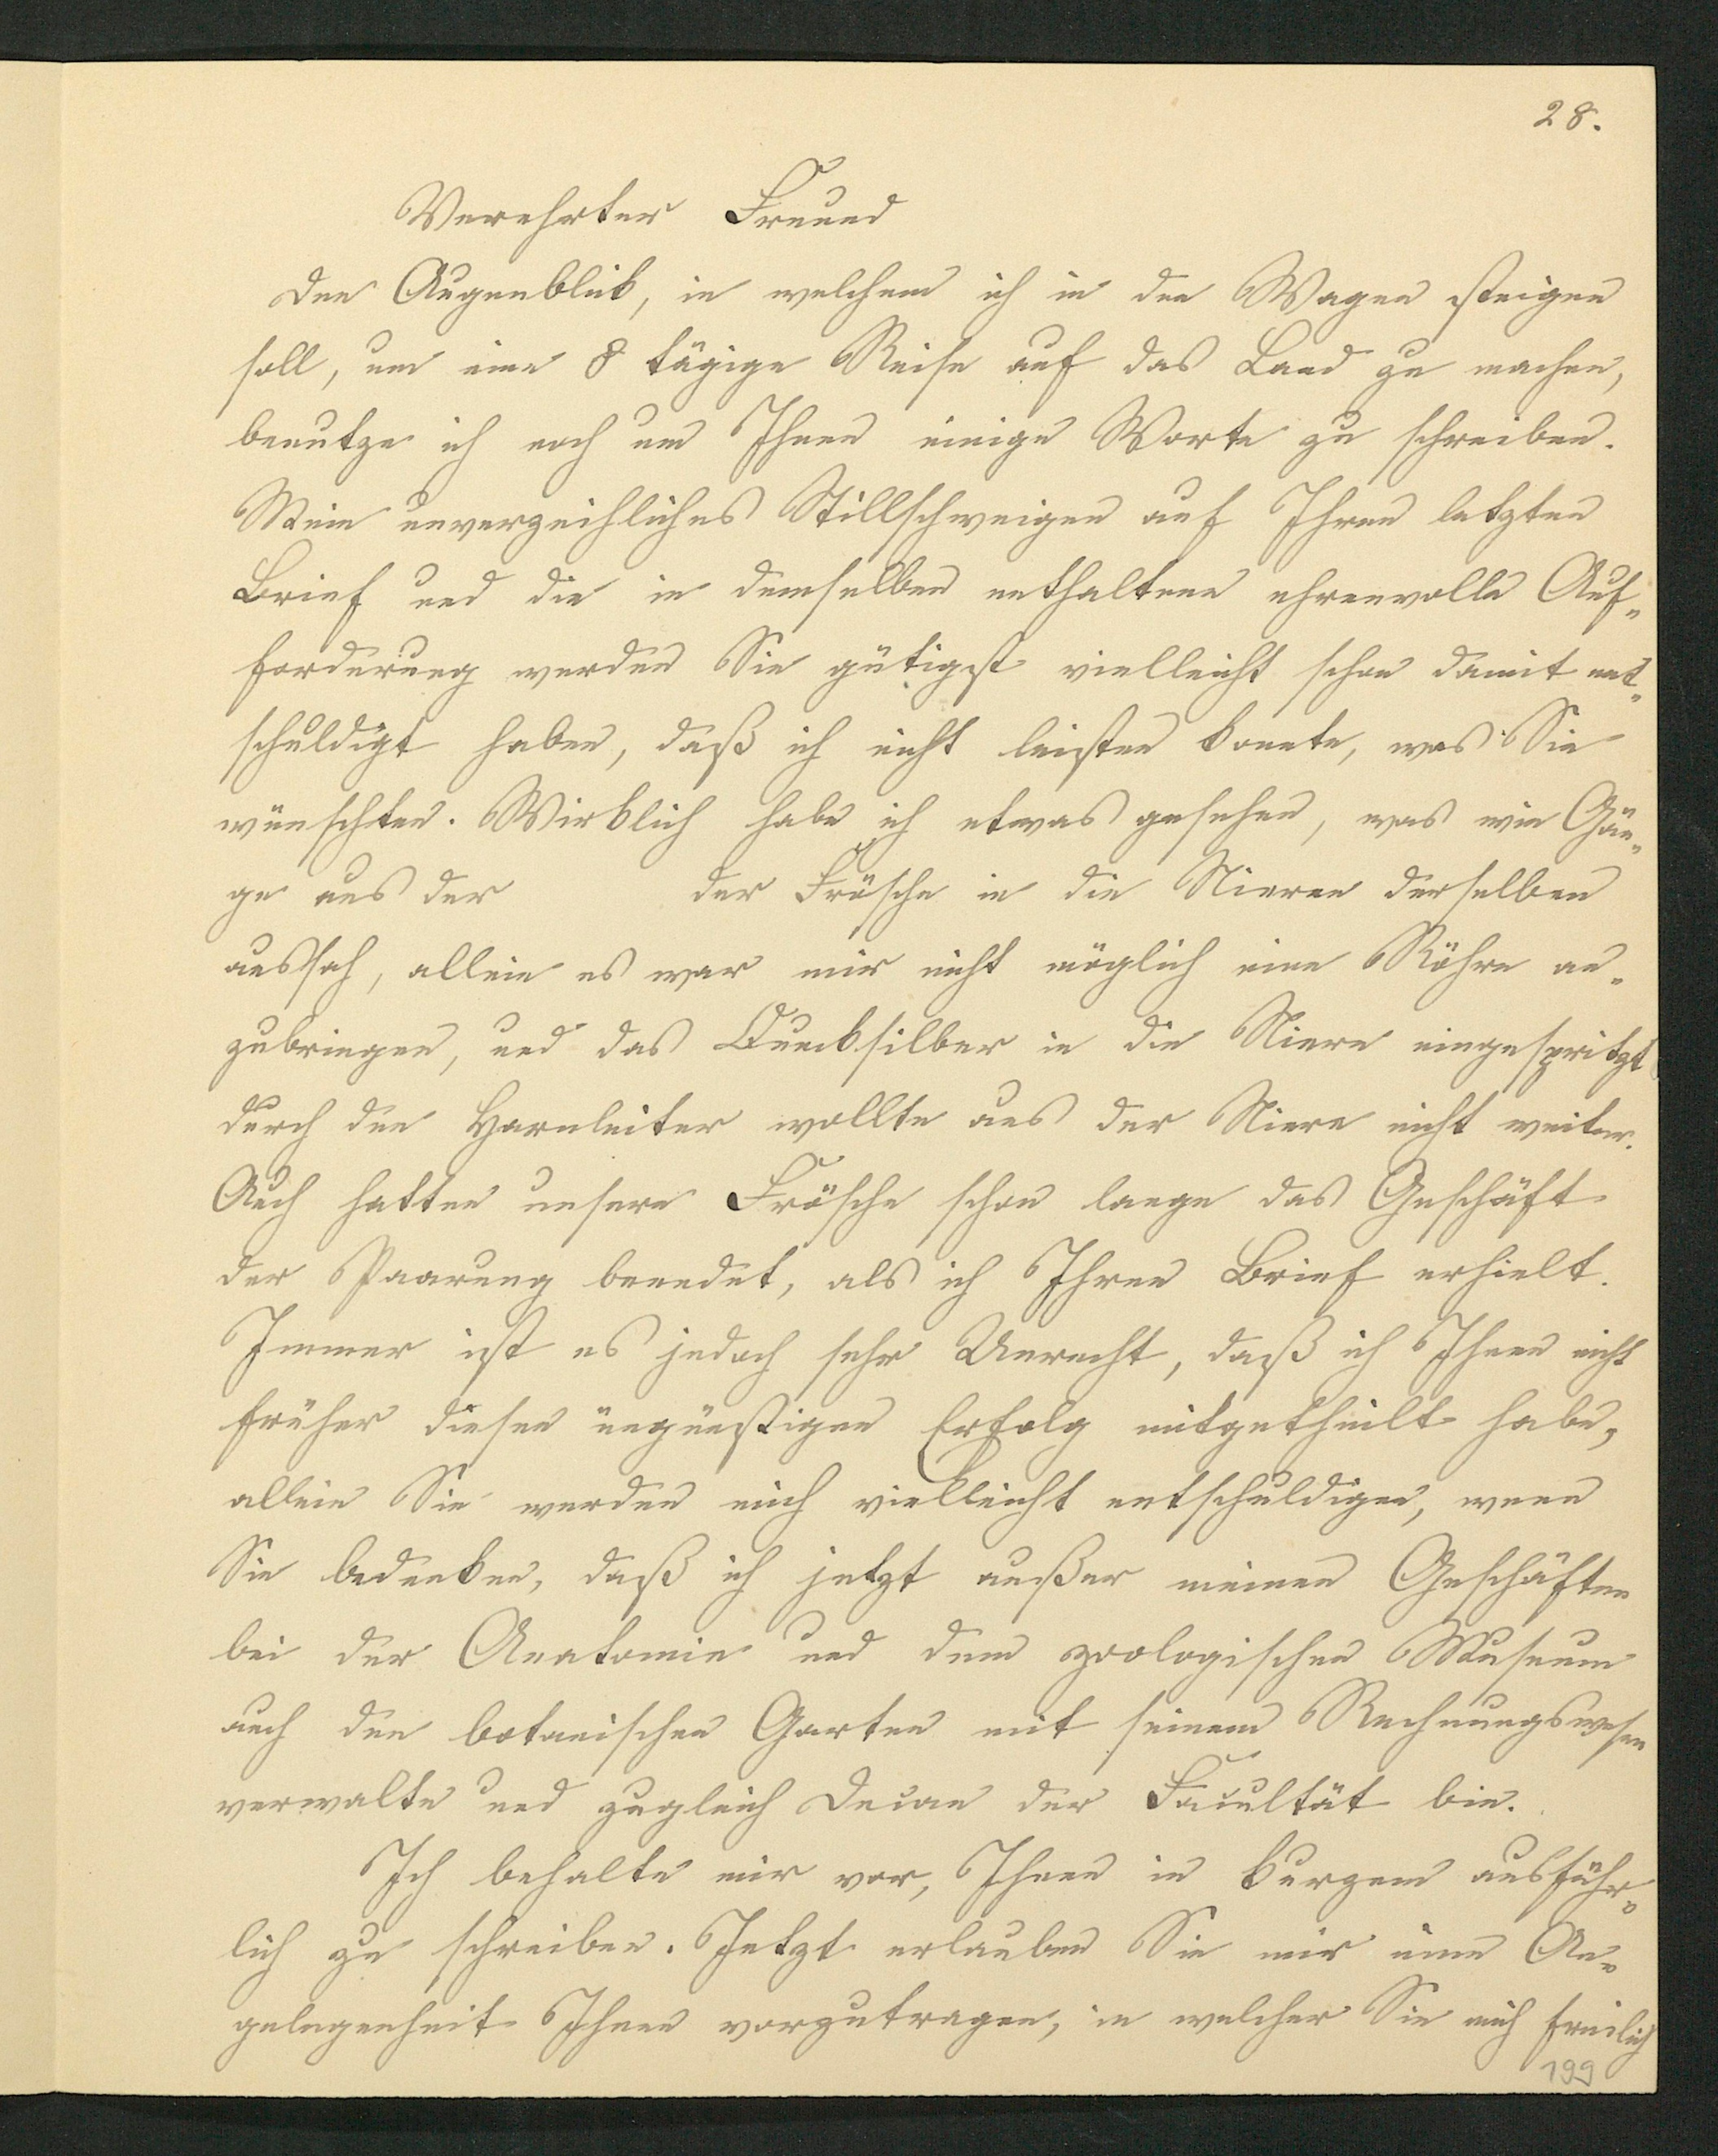 28.
Verehrter Freund
Den Augenblick, in welchem ich in den Wagen steigen
soll, um eine 8 tägige Reise auf das Land zu machen,
benutze ich noch um Ihnen einige Worte zu schreiben.
Mein unverzeihliches Stillschweigen auf Ihren letzten
Brief und die in demselben enthaltene ehrenvolle Auf-
forderung werden Sie gütigst vielleicht schon damit ent-
schuldigt haben, daß ich nicht leisten konnte, was Sie
wünschten. Wirklich habe ich etwas gesehen, was wie Gän-
ge aus der der Frösche in die Nieren derselben
aussah, allein es war mir nicht möglich eine Röhre an-
zubringen, und das Quecksilber in die Niere eingespritzt
durch den Harnleiter wollte aus der Niere nicht weiter.
Auch hatten unsere Frösche schon lange das Geschäft
der Paarung beendet, als ich Ihren Brief erhielt.
Immer ist es jedoch sehr Unrecht, daß ich Ihnen nicht
früher diesen ungünstigen Erfolg mitgetheilt habe,
allein Sie werden mich vielleicht entschuldigen, wenn
Sie bedenken, daß ich jetzt außer meinen Geschäften
bei der Anatomie und dem zoologischen Museum
auch den botanischen Garten mit seinem Rechnungswesen
verwalte und zugleich Decan der Facultät bin.
Ich behalte mir vor, Ihnen in kurzem ausführ-
lich zu schreiben. Jetzt erlauben Sie mir eine An-
gelegenheit Ihnen vorzutragen, in welcher Sie mich freilich
199